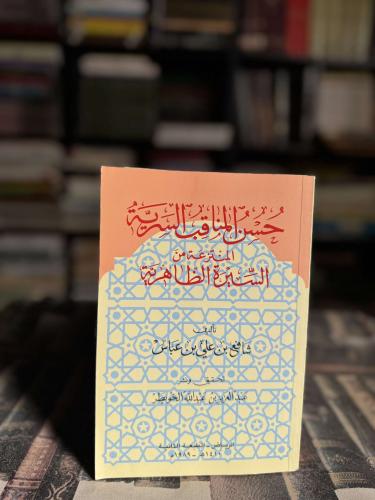 حُسْنُ المناقب السَرِيَّة
المنتزعة من
السِّيرة الظاهريَّة
تأليف
شافع بن علي بن عباس
تحقيق ونشر
عبد العزيز بن عبد الله الخويطر
الرياض - الطبعة الثانية
١٤١٠هـ - ١٩٨٩م